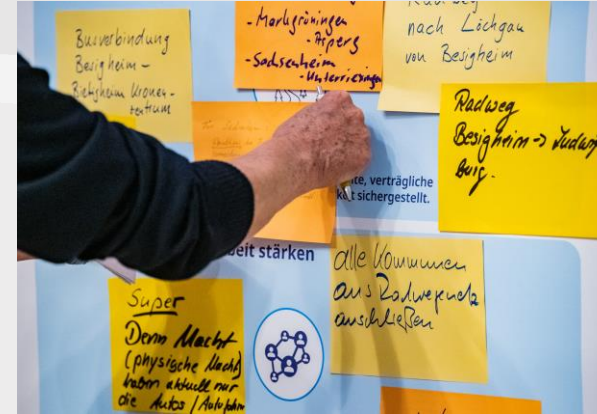 Busverbindung
Besigheim -
Bietigheim Kronen-
zentrum
- Markgröningen
- Asperg
- Sachsenheim
- Unterriexingen
Radweg
nach Löchgau
von Besigheim
Radweg
Besigheim -> Ludwigs
burg.
te, verträgliche
sichergestellt.
beit stärken
alle Kommunen
ans Radwegenetz
anschließen
Super
Denn Macht
(physische Macht)
haben aktuell nur
die Autos / Autofahr